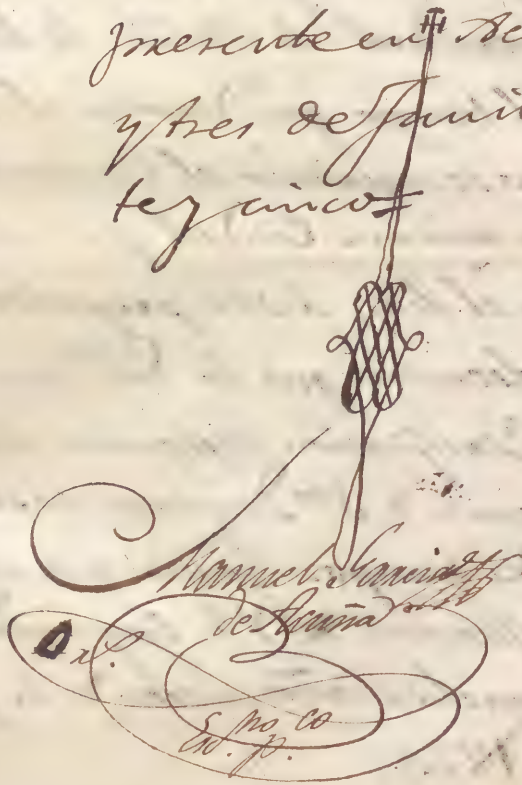 presente en Ac
y tres de Juni
te y cinco=
Manuel Garcia
de Acuña
Es.no p.co